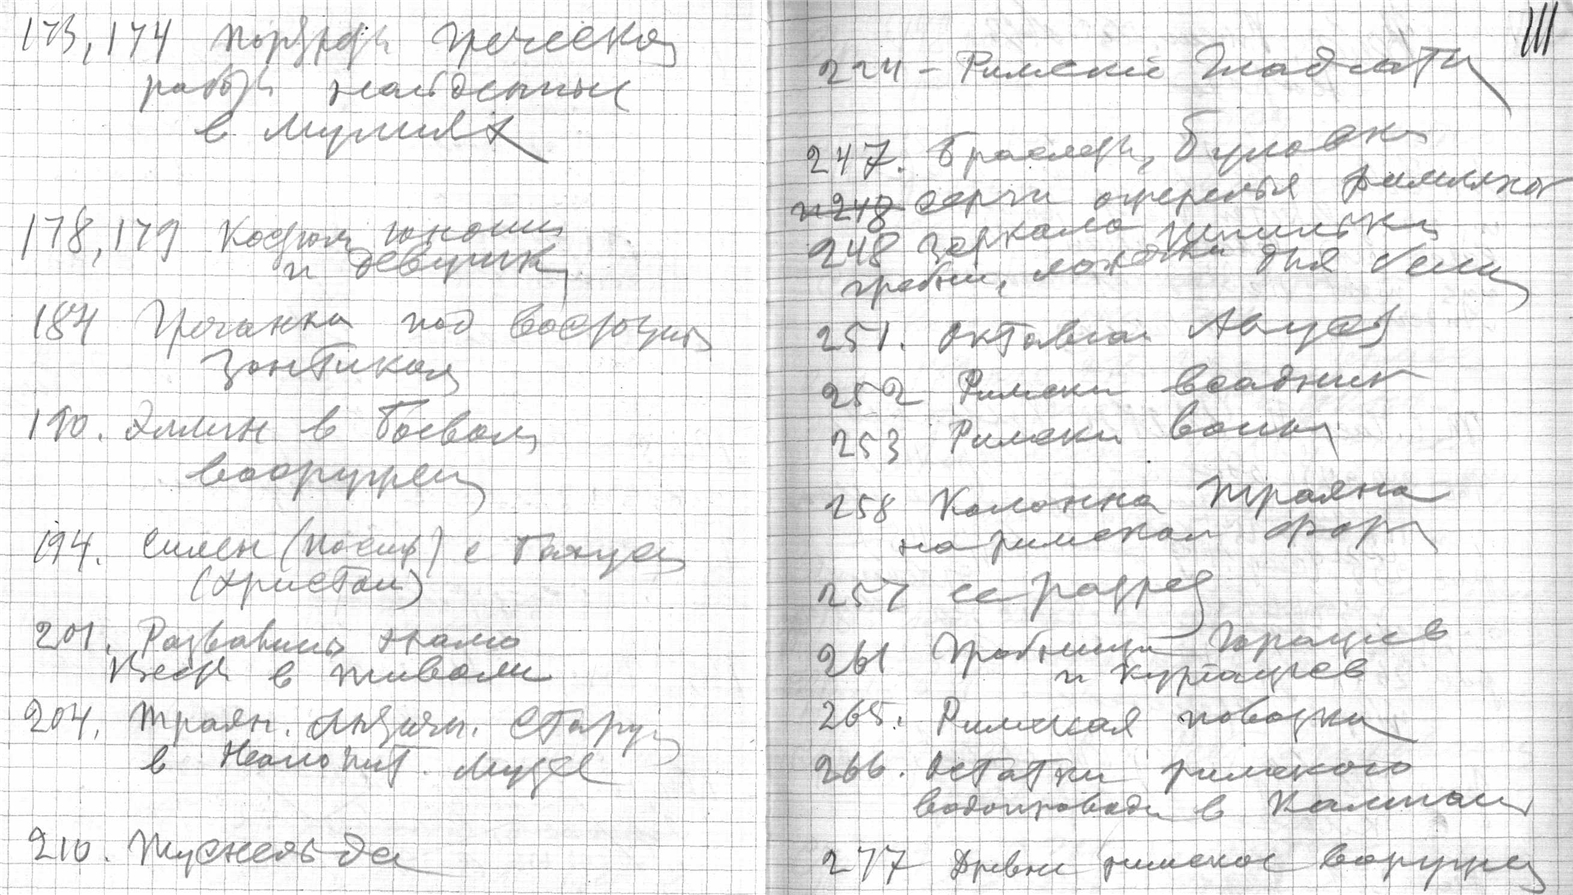 173, 174 портреты греческой
работы найденные
в мумиях
178, 179 Костюм юноши
и девушки
184 Гречанка под восточным
зонтиком
190. Эллин в боевом
вооружен
194. Силен (Иосиф) с Вакхом
(Христом)
201. Развалины храма
Весты в Тиволи
204. Траян. Антич. статуя
в Неаполит. музее
210. Туснельда
III
224 - Римские гладиат
247. Браслеты, булавки
и 248 серьги ожерелья римлянок
248 зеркало шпильки
гребни, ложечки для белил
251. Октавиан Август
252 Римский всадник
253 Римский воин
258 Колонна Траяна
на римском фор
257 ее разрез
261 Гробница Горациев
и Куриациев
265. Римская повозка
266. Остатки римского
водопровода в Кампании
277 Древне римское вооружен